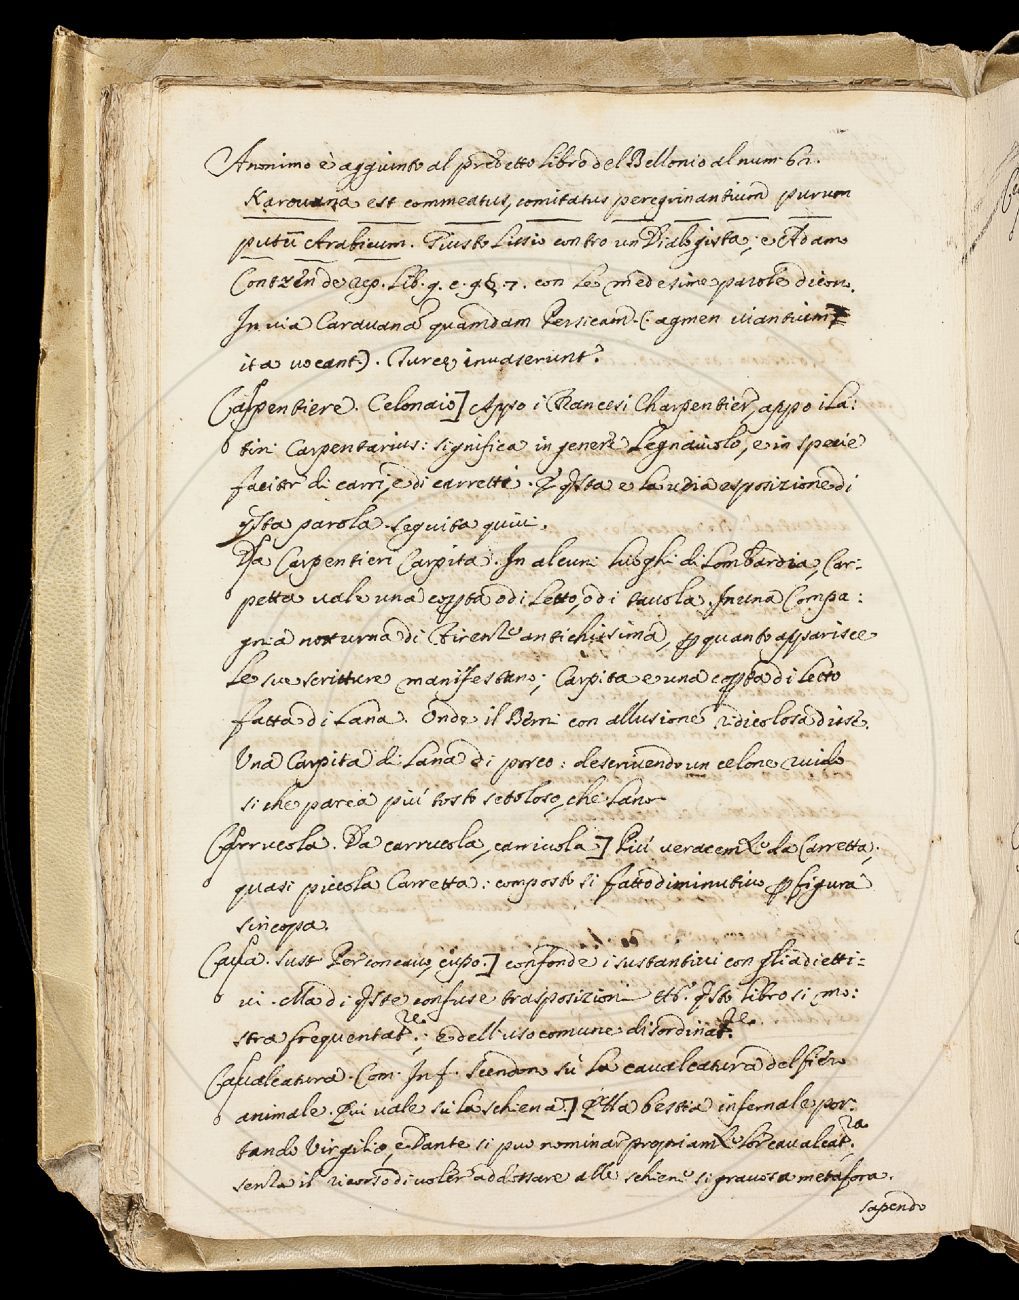 Anonimo è aggiunto al predetto Libro del Bellonio al num. 61.
Karouana est commeatus, comitatus peregrinantium purum
putũ Arabicum. Giusto Lissio contro un Dialogista; e Adamo
Contzen de rep. Lib. 9. c. 7. con le medesime parole dicon.
In uia Carauana quamdam Persicam (: agmen uiantium
ita uocant:). Turcę inuaserunt.
Carpentiere. Celonaio] Appo i Francesi Charpentier, appo i La:
tini Carpentarius: significa in genere Legnaiuolo, e in specie
facitor di carri, e di carrette. Q̃sta e la udia esposizione di
q̃sta parola. Seguita quiui.
Da Carpentieri Carpita. In alcuni luoghi di Lombardia, Car-
petta uale una cop̃ta o di Letto, o di tauola. In una Compa:
gnia notturna di Firenze antichissima, p̃ quanto apparisce
Le sue scritture manifestano; Carpita e una cop̃ta di Letto
fatta di Lana. Onde il Berni con allusione ridicolosa disse.
Una Carpita di Lana di porco: descriuendo un celone ruuido
si che parea più tosto setoloso, che Lano
Carrucola. Da carrucola, carriuola] Più ueracem.te da Carretta,
quasi piccola Carretta: composto si fatto diminutiuo p̃ figura
sincopa.
Caua. Sust. Per concauo, cupo.] confonde i sustantiui con gli adietti-
ui. Ma di q̃ste confuse trasposizioni tt.o q̃sto libro si mo:
stra frequentat.re; e dell'uso comune disordinat.re
Caualcatura. Com. Inf. Scendon sù La caualcatura del fiero
animale. Qui uale sù la schiena] Q̃lla bestia infernale por-
tando Virgilio, e Dante si può nominar propriam.te Lor caualcat.ra
senza il ricorso di uoler addossare alle schiene si grauosa metafora.
sapendo